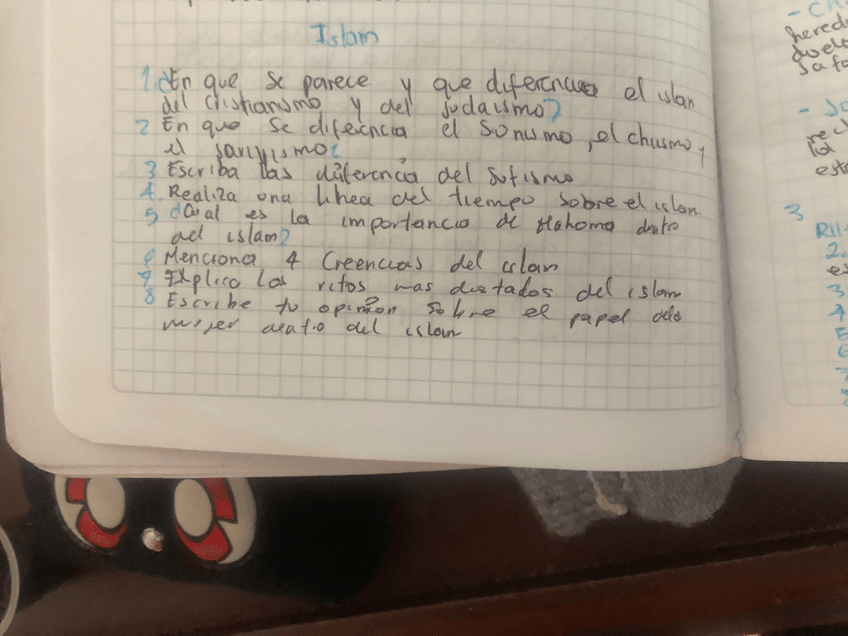 Islam
1 ¿En que se parece y que diferencia el islan
del cristianismo y del judaismo?
2 En que se diferencia el sonismo, el chiismo y
el jariyismo?
3 Escriba las diferencia del sufismo
4. Realiza una linea del tiempo sobre el islan
5 ¿Cual es la importancia de Mahoma dentro
del islam?
6 Menciona 4 Creencias del islan
7 Explica los ritos mas del islam
8 Escribe tu opinion sobre el papel dela
mujer del islan
- CH
hered
duelo
- 
3
2.
es
3
4